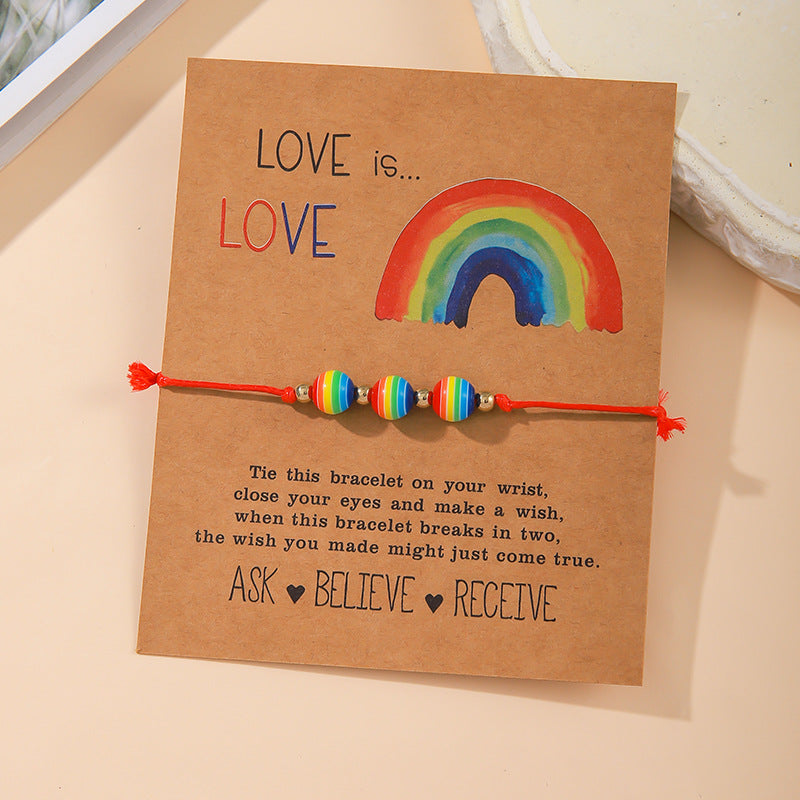 LOVE is...
LOVE
Tie this bracelet on your wrist,
close your eyes and make a wish,
when this bracelet breaks in two,
the wish you made might just come true.
ASK ♥ BELIEVE ♥ RECEIVE